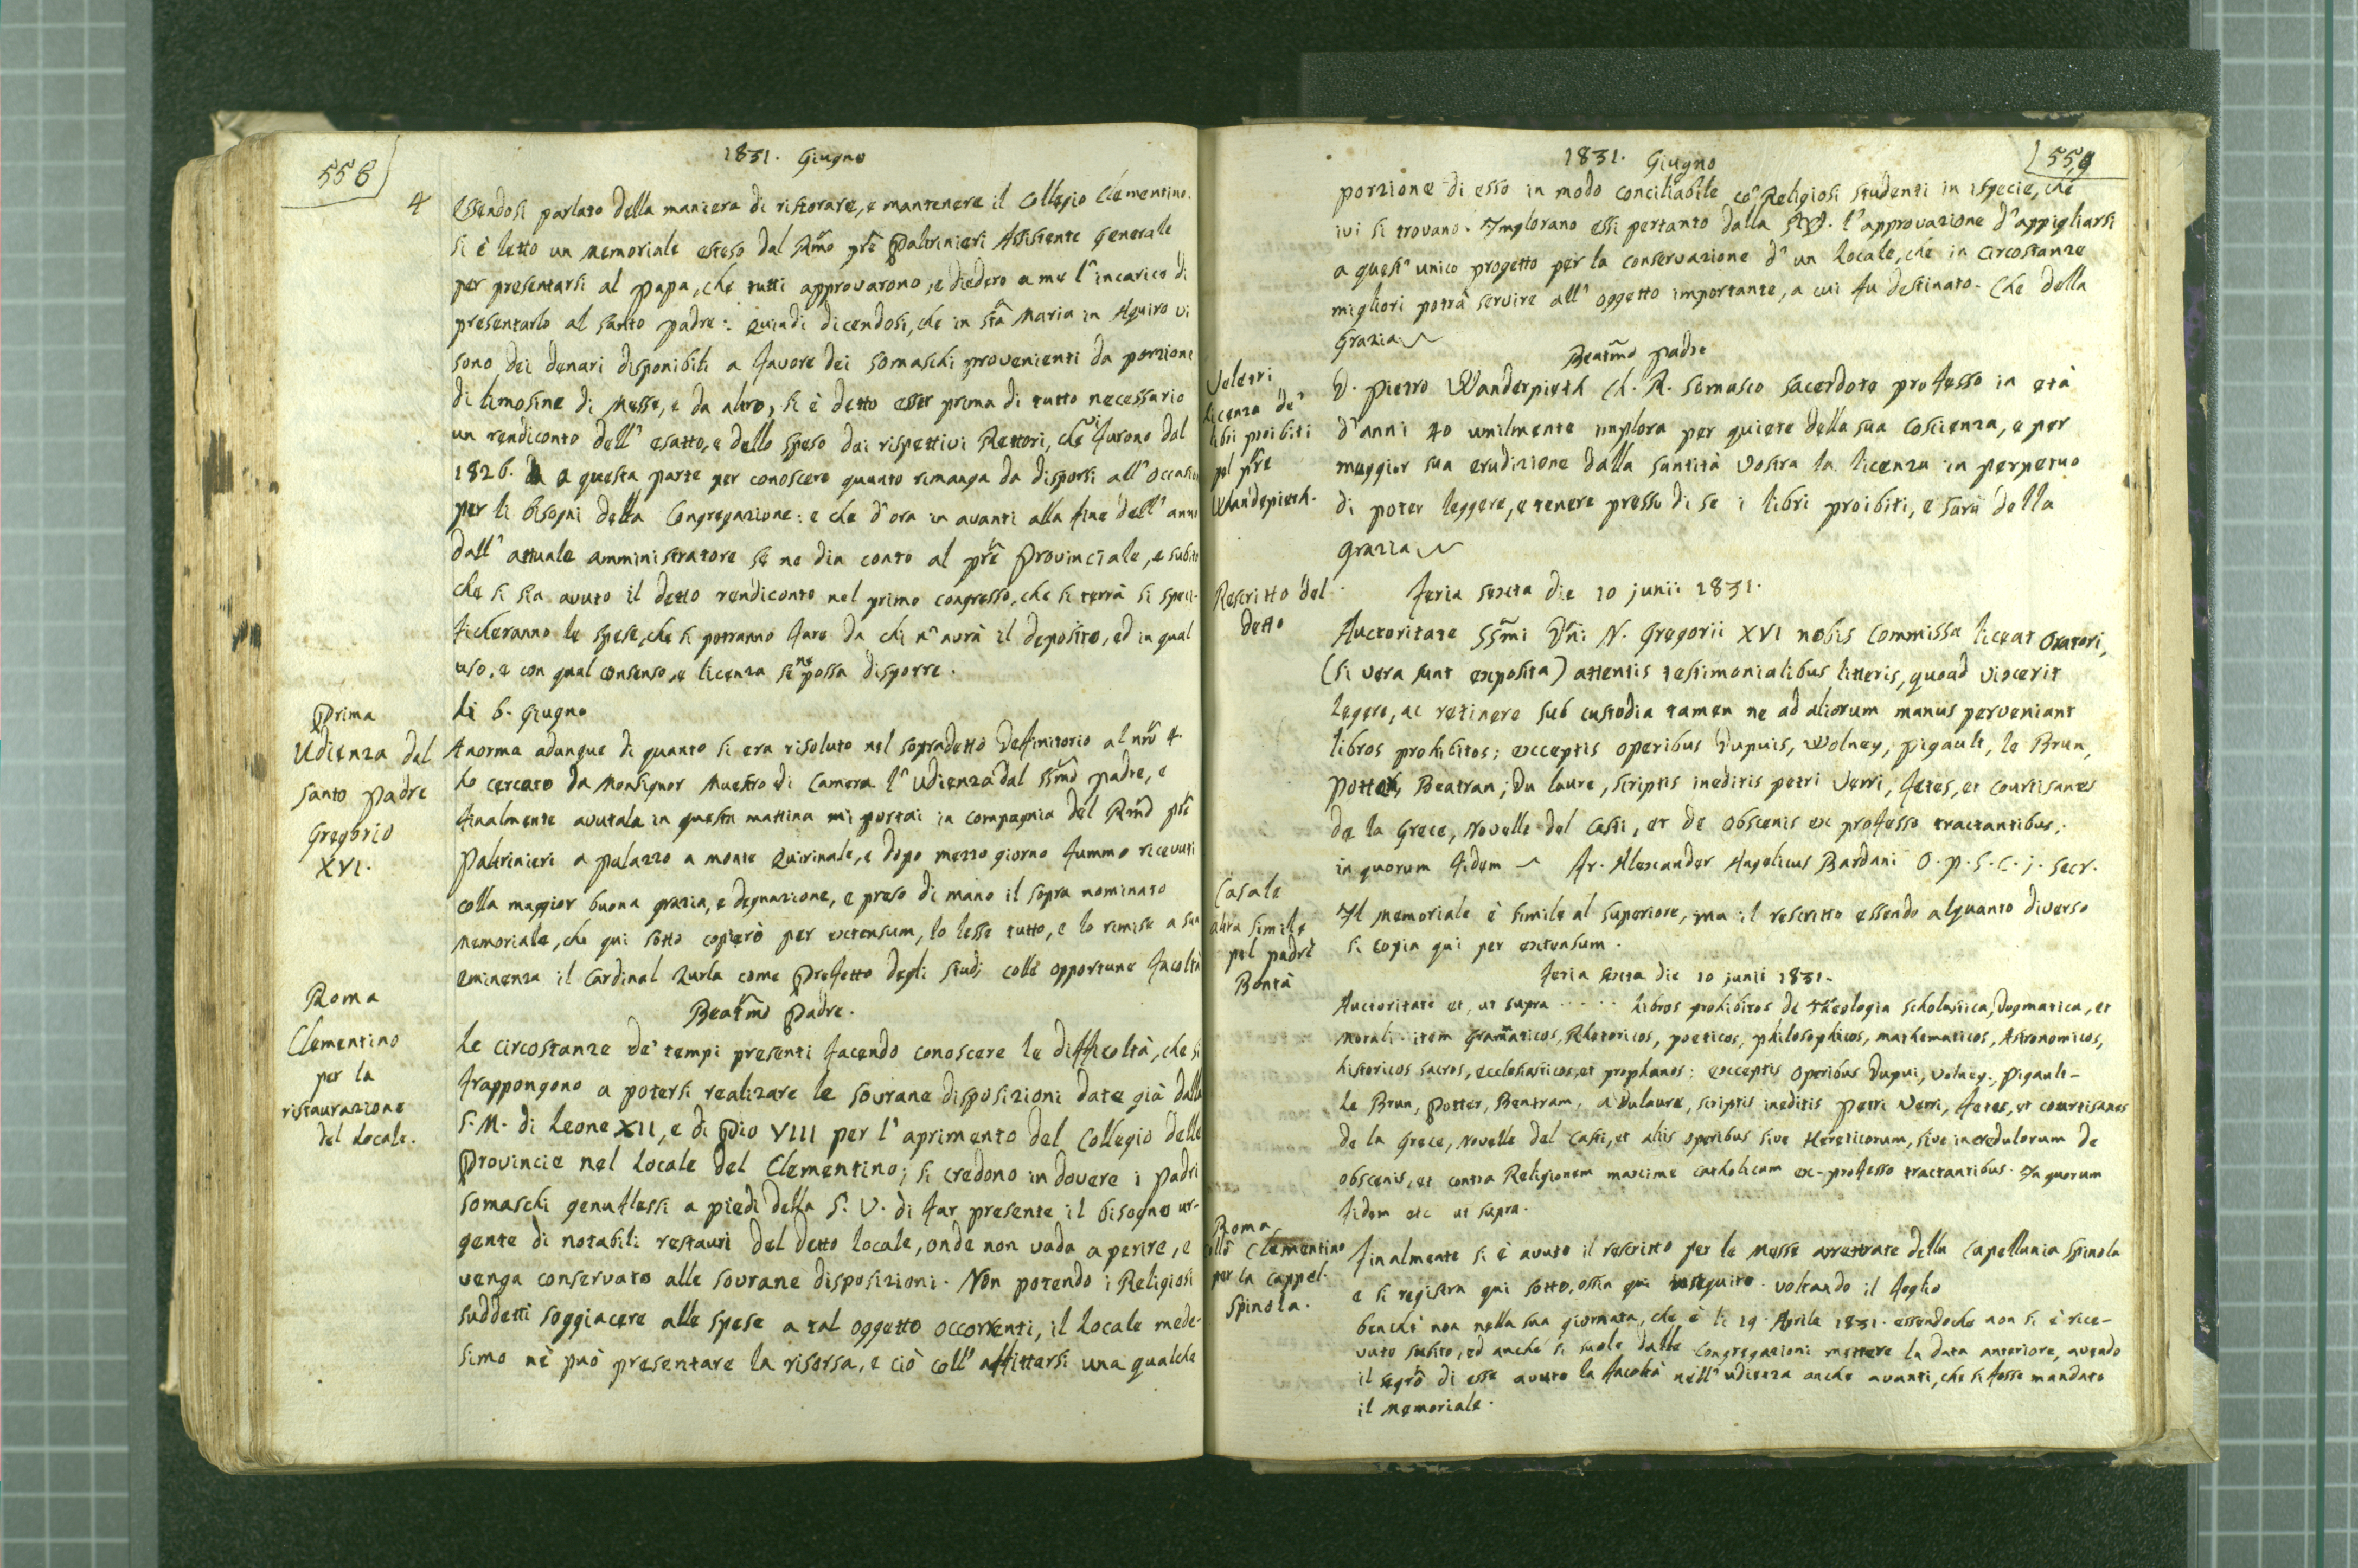 558
1831. Giugno
4
Essendosi parlato della maniera di ristorare, e mantenere il Collegio Clementino.
si è letto un Memoriale esteso dal Rmo pre Paltrinieri Assistente Generale
per presentarsi al Papa, che tutti approvarono, e diedero a me l'incarico di
presentarlo al Santo Padre: Quindi dicendosi, che in Sta Maria in Aquiro vi
sono dei denari disponibili a favore dei Somaschi provenienti da porzione
di limosine di Messe, e da altro, si è detto esser prima di tutto necessario
un rendiconto dell' esatto, e dello speso dai rispettivi Rettori, che vi furono dal
1826. a questa parte per conoscere quanto rimanga da disporsi all' occasion
per li bisogni della Congregazione: e che d'ora in avanti alla fine dell' anno
dall' attuale amministratore se ne dia conto al pre Provinciale, e subito
che si sia avuto il detto rendiconto nel primo congresso, che si terrà si speci-
ficheranno le spese, che si potranno fare da chi n'avrà il deposito, ed in qual
uso, e con qual consenso, e licenza se ne possa disporre.
Prima
Udienza dal
Santo Padre
Gregorio
XVI.
Li 6. Giugno
A norma adunque di quanto si era risoluto nel sopradetto Deffinitorio al nro 4
ho cercato da Monsignor Maestro di Camera l'udienza dal SSmo Padre, e
finalmente avutala in questa mattina mi portai in compagnia del Rmo pre
Paltrinieri a Palazzo a monte Quirinale, e dopo mezzo giorno fummo ricevuti
colla maggior buona grazia, e degnazione, e preso di mano il sopra nominato
Memoriale, che qui sotto copierò per extensum, lo lesse tutto, e lo rimise a sua
Eminenza il Cardinal Zurla come Prefetto degli Studj colle opportune facoltà
Roma
Clementino
per la
ristaurazione
del Locale.
Beatmo Padre.
Le circostanze de' tempi presenti facendo conoscere le difficoltà, che si
frappongono a potersi realizzare le sovrane disposizioni date già dalla
S. M. di Leone XII, e di Pio VIII per l'aprimento del Collegio delle
Provincie nel Locale del Clementino; si credono in dovere i Padri
Somaschi genuflessi a piedi della S. V. di far presente il bisogno ur-
gente di notabili restauri del detto locale, onde non vada a perire, e
venga conservato alle sovrane disposizioni. Non potendo i Religiosi
suddetti soggiacere alle spese a tal oggetto occorrenti, il Locale mede-
simo nè può presentare la risorsa, e ciò coll' affittarsi una qualche
1831. Giugno
559
porzione di esso in modo conciliabile co' Religiosi studenti in ispecie, che
ivi si trovano. Implorano essi pertanto dalla S.V. l'approvazione d'appigliarsi
a quest' unico progetto per la conservazione d' un Locale, che in circostanze
migliori potrà servire all' oggetto importante, a cui fu destinato. Che della
Grazia
Beatmo Padre
Veletri
licenza de'
libri proibiti
pel pre
Wandepieth.
D. Pietro Wanderpieth Ch. R. Somasco Sacerdote professo in età
d'anni 40 umilmente implora per quiete della sua Coscienza, e per
maggior sua erudizione dalla Santità Vostra la licenza in perpetuo
di poter leggere, e tenere presso di se i libri proibiti, e sarà della
Grazia
Rescritto del
detto
Feria sexta die 10 junii 1831.
Auctoritate SSmi Dni N. Gregorii XVI nobis commissa liceat Oratori,
(si vera sunt exposita) attentis testimonialibus litteris, quoad vixerit
legere, ac retinere sub custodia tamen ne ad aliorum manus perveniant
libros prohibitos; exceptis operibus Dupuis, Wolney, Pigault, le Brun,
Potter, Beatran; Du laure, scriptis ineditis Petri Verri, Fetes, et Courtisanes
de la Grece, Novelle del Casti, et de obscenis ex professo tractantibus;
in quorum fidem Fr. Alexander Angelicus Bardani O. P. S. C. j. Secr.
Casale
altra simile
pel padre
Bontà
Il Memoriale è simile al superiore, ma il rescritto essendo alquanto diverso
si copia qui per extensum.
Feria sexta die 10 junii 1831.
Auctoritate et, ut supra ..... Libros prohibitos de Theologia Scholastica, Dogmatica, et
Morali. item Gramaticos, Rhetoricos, poeticos, philosophicos, mathematicos, Astronomicos,
historicos sacros, ecclesiasticos, et prophanos: exceptis operibus Dupui, Volney, Pigault-
Le Brun, Potter, Bentram, a Dulaure, scriptis ineditis Petri Verri, Fetes, et courtisanes
de la Grece, Novelle del Casti, et aliis operibus sive Hereticorum, sive incredulorum de
obscenis, et contra Religionem maxime catholicam ex-professo tractantibus. In quorum
fidem etc ut supra.
Roma
Clementino
per la Cappel.
Spinola.
Finalmente si è avuto il rescritto per le Messe arretrate della Capellania Spinola
e si registra qui sotto, ossia qui inseguito voltando il foglio
benchè non nella sua giornata, che è li 19 Aprile 1831. essendoche non si è rice-
vuto subito, ed anche si suole dalle Congregazioni mettere la data anteriore, avendo
il segrо di esse avuto la facoltà nell' udienza anche avanti, che si fosse mandato
il Memoriale.